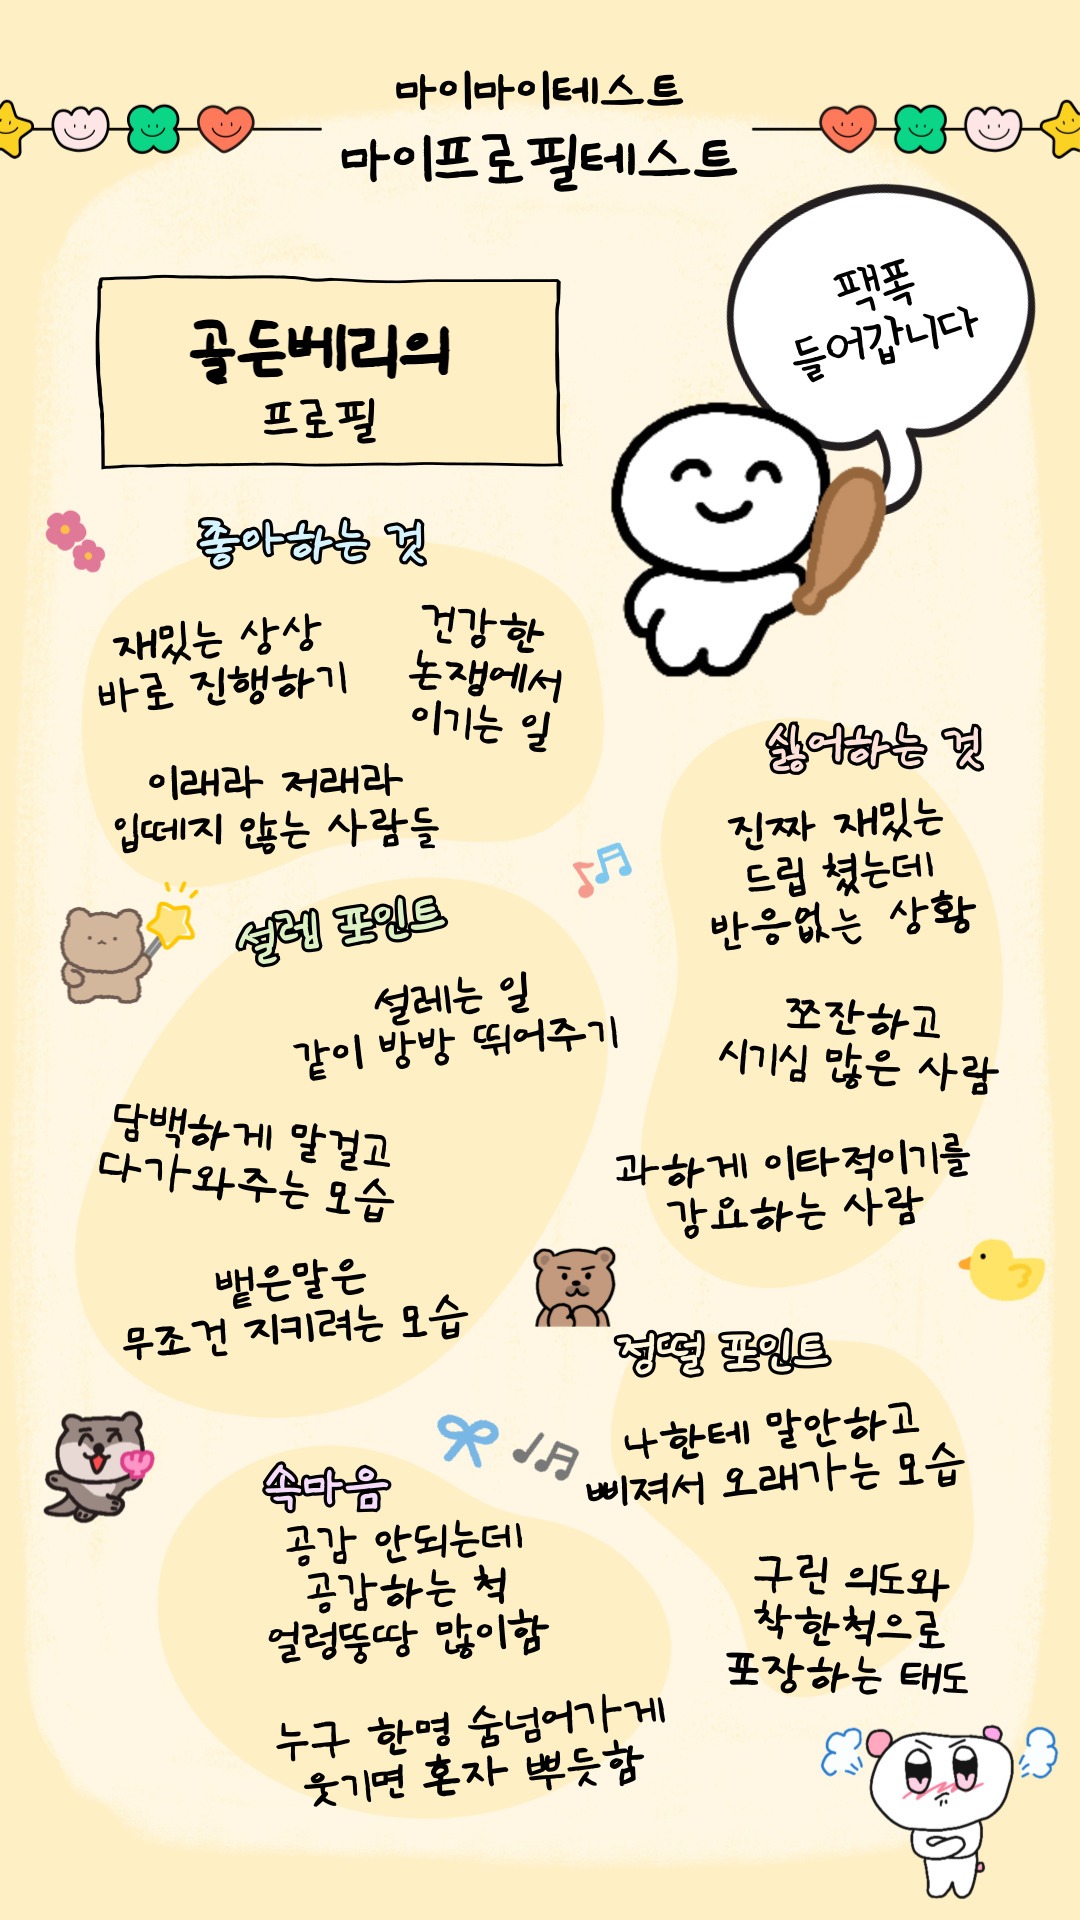 마이마이테스트
마이프로필테스트
팩폭
들어갑니다
골든베리의
프로필
좋아하는 것
재밌는 상상
바로 진행하기
건강한
논쟁에서
이기는 일
이래라 저래라
입떼지 않는 사람들
싫어하는 것
진짜 재밌는
드립 쳤는데
반응없는 상황
쪼잔하고
시기심 많은 사람
과하게 이타적이기를
강요하는 사람
설렘 포인트
설레는 일
같이 방방 뛰어주기
담백하게 말걸고
다가와주는 모습
뱉은말은
무조건 지키려는 모습
정떨 포인트
나한테 말안하고
삐져서 오래가는 모습
구린 의도와
착한척으로
포장하는 태도
속마음
공감 안되는데
공감하는 척
얼렁뚱땅 많이함
누구 한명 숨넘어가게
웃기면 혼자 뿌듯함